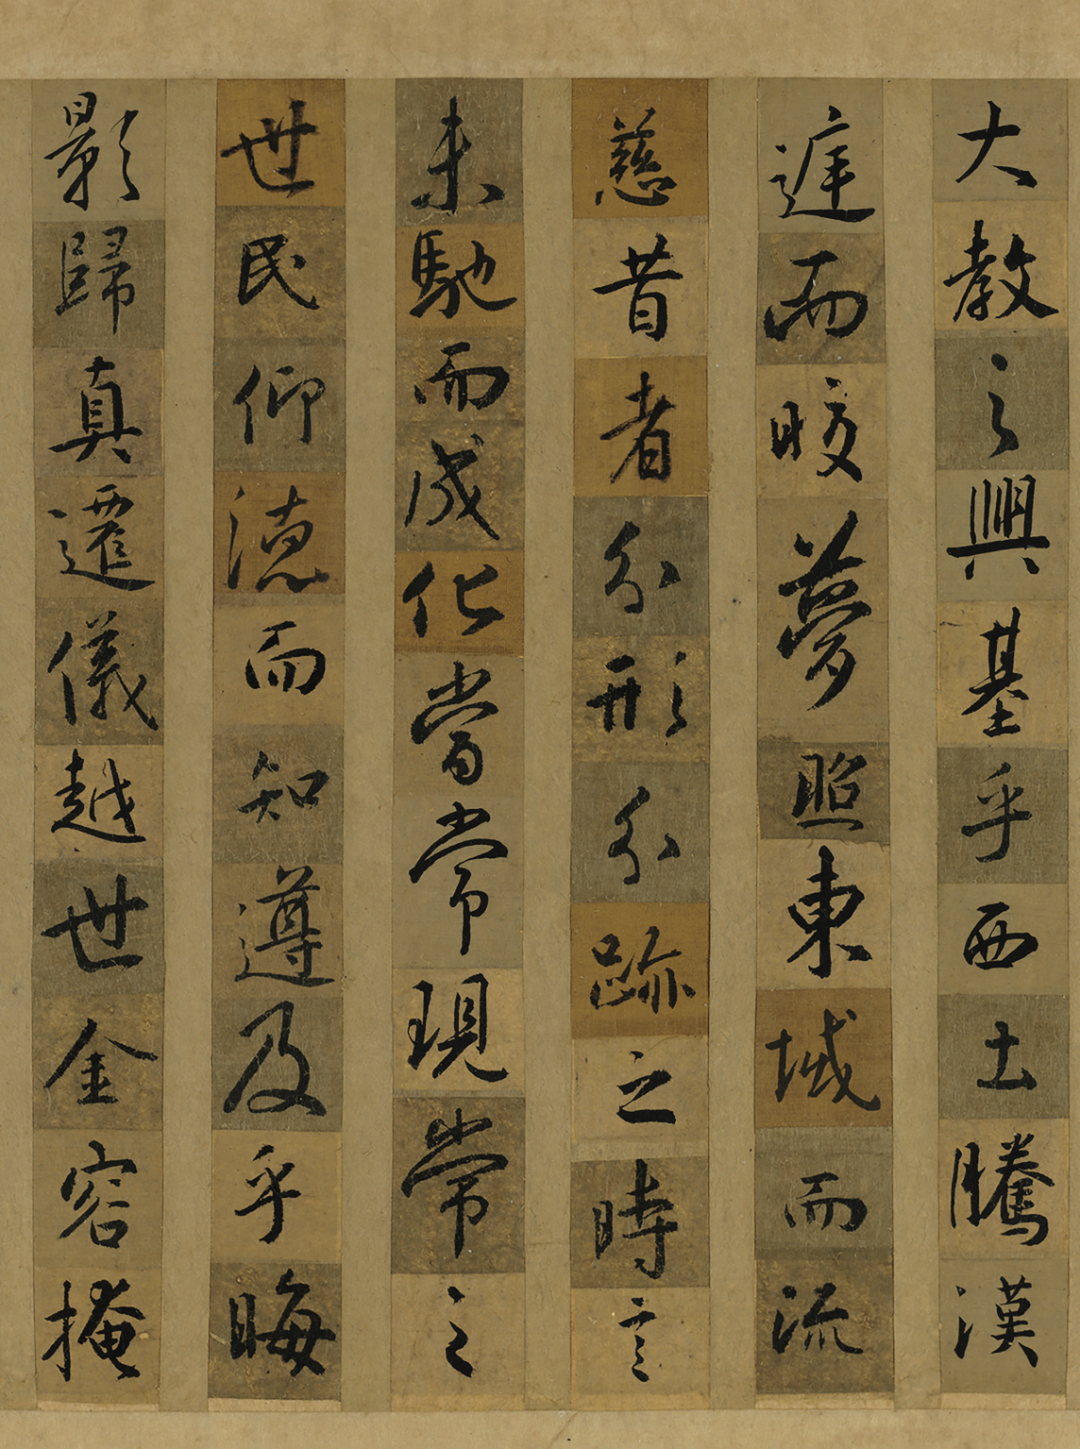 大教之興基乎西土騰漢
遲而皎夢照東域而流
慈昔者分形分跡之時言
未馳而成化當常現常之
世民仰德而知遵及乎晦
影歸真遷儀越世金容掩